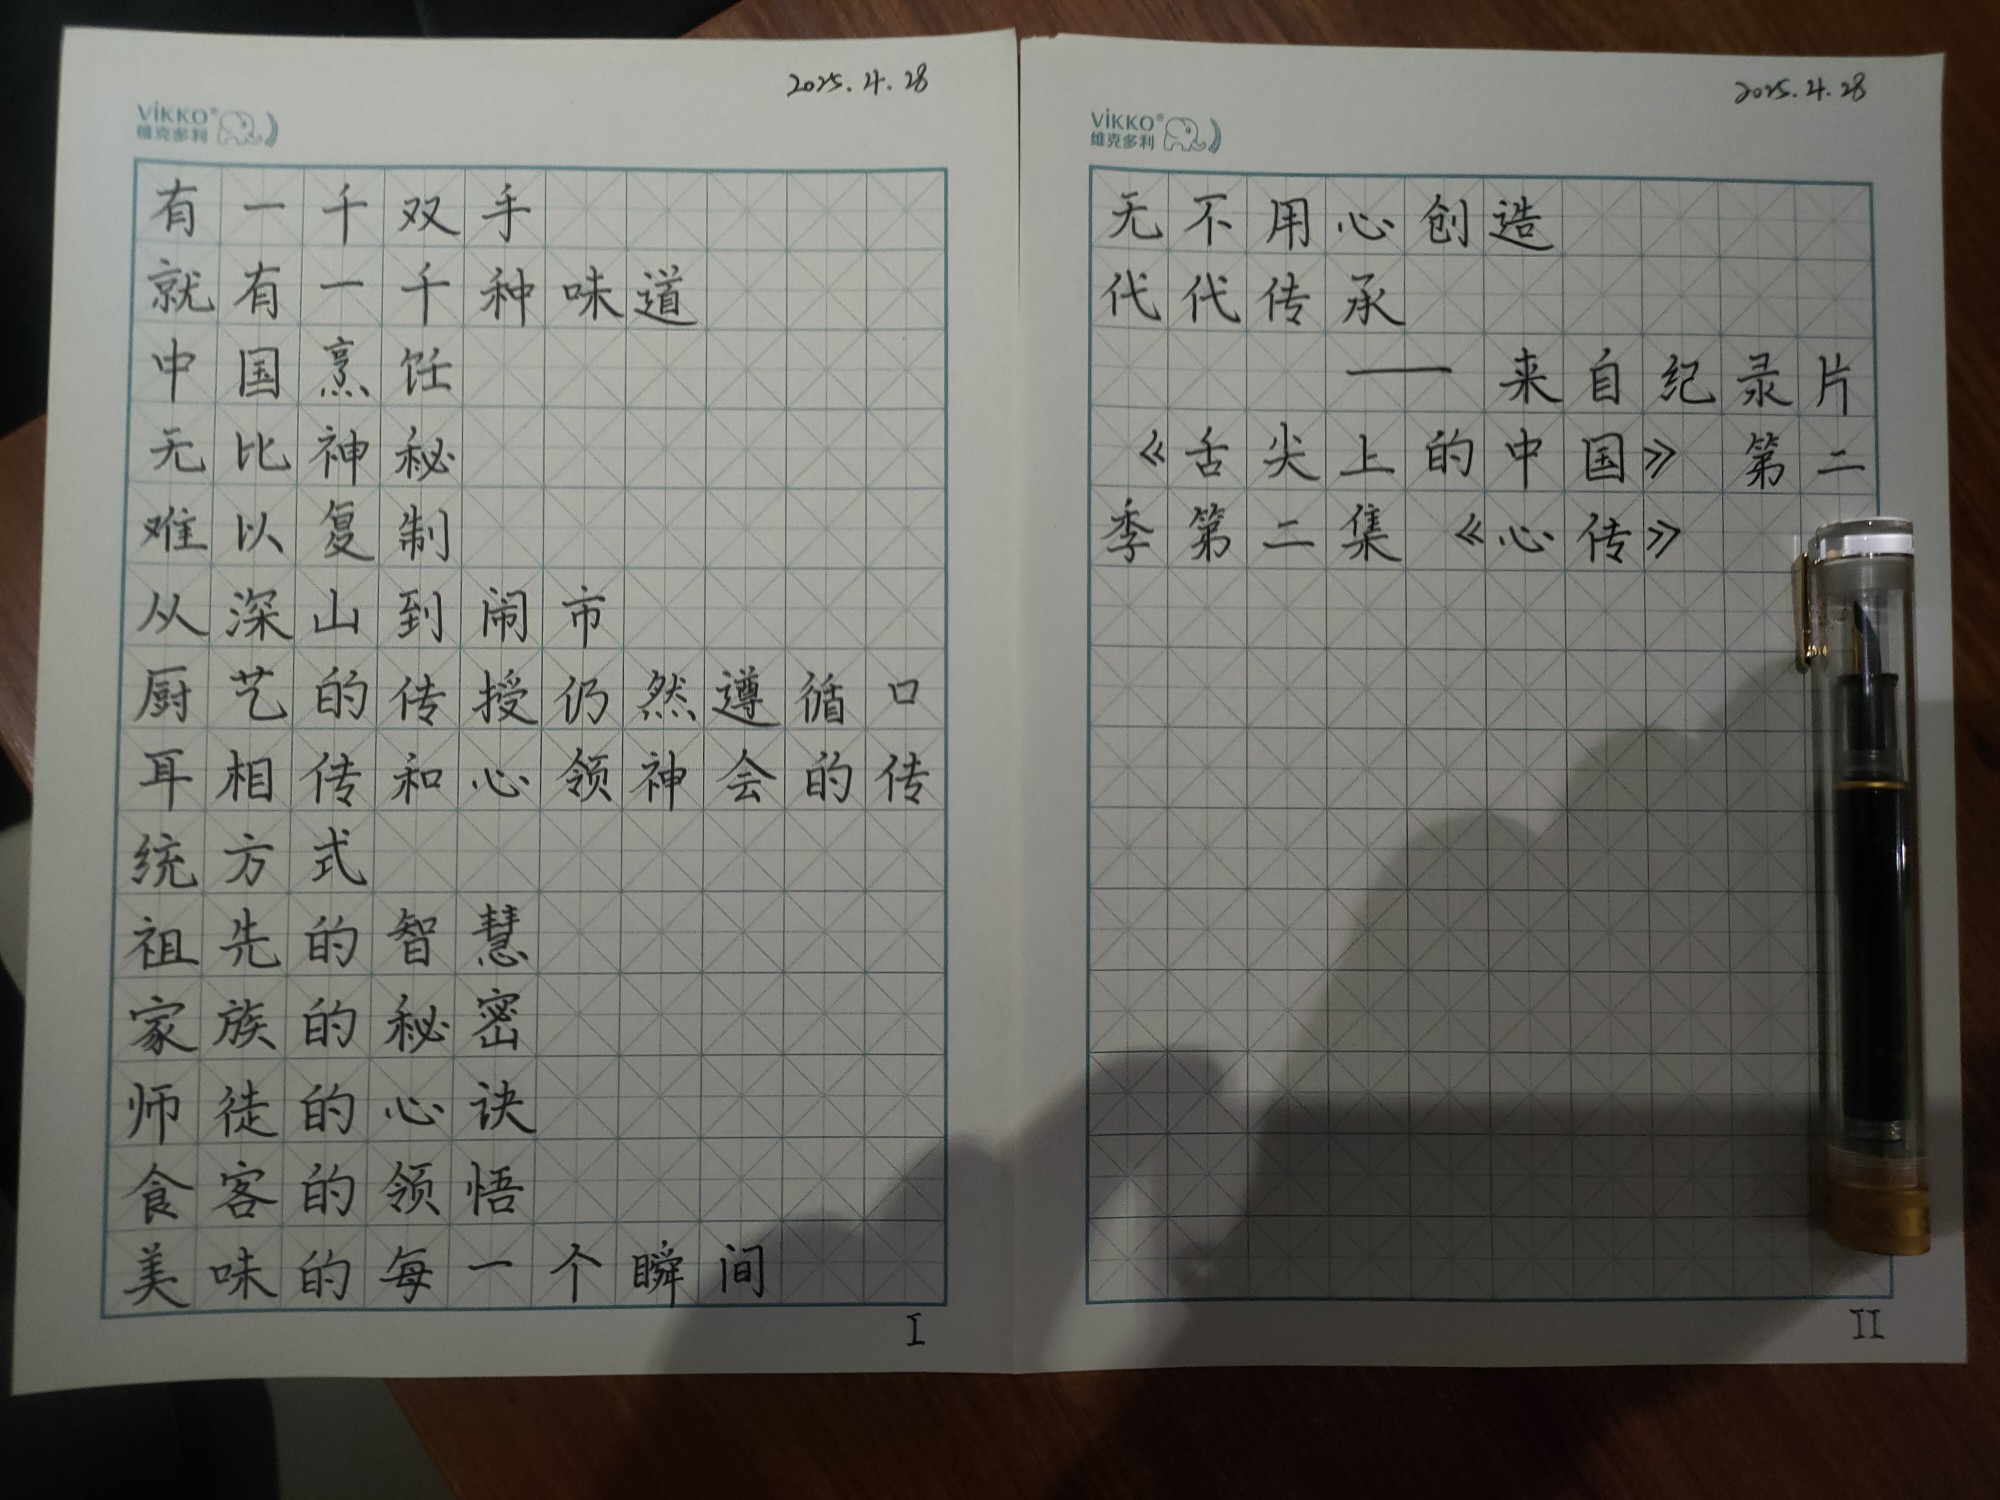 2025.4.28
VIKKO®
維克多利
有一千双手
就有一千种味道
中国烹饪
无比神秘
难以复制
从深山到闹市
厨艺的传授仍然遵循口
耳相传和心领神会的传
统方式
祖先的智慧
家族的秘密
师徒的心诀
食客的领悟
美味的每一个瞬间
I
2025.4.28
VIKKO®
維克多利
无不用心创造
代代传承
——来自纪录片
《舌尖上的中国》第二
季第二集《心传》
II